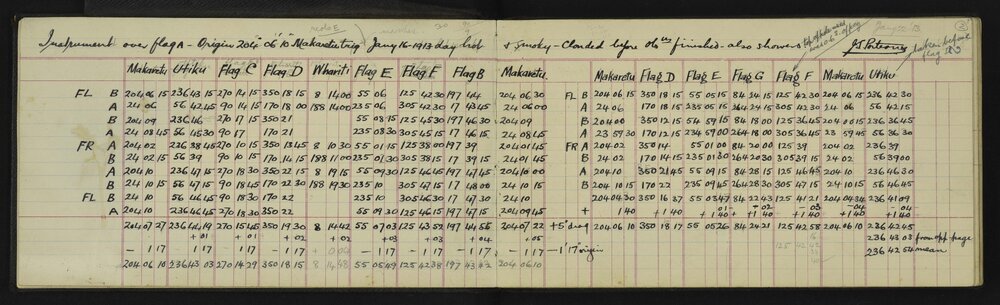 Instrument over flag A - Origin 204° 06' 10" Makaretu trig Jany 16-1913 day hot & smoky - Clouded before obns finished - also showers
Makaretu Utiku Flag C Flag D Whariti Flag E Flag F Flag B Makaretu Makaretu Flag D Flag E Flag G Flag F Makaretu Utiku
FL B 204 06 15 236 43 15 270 14 15 350 18 15 8 14 00 55 06 125 42 30 197 44 204 06 30 FL B 204 06 15 350 18 15 55 05 15 84 24 15 125 42 30 204 06 15 236 42 30
A 24 06 56 42 45 90 14 15 170 18 00 188 14 00 235 06 305 42 30 17 43 45 24 06 00 A 24 06 170 18 15 235 05 15 264 24 15 305 42 30 24 06 56 42 15
B 204 09 236 46 270 17 15 350 21 55 08 15 125 45 30 197 46 30 204 09 B 204 00 350 12 15 54 59 15 84 18 00 125 36 45 204 00 15 236 36 45
A 24 08 45 56 45 30 90 17 170 21 235 08 30 305 45 15 17 46 15 24 08 45 A 23 59 30 170 12 15 234 59 00 264 18 00 305 36 45 23 59 45 56 36 30
FR A 204 02 236 38 45 270 10 15 350 13 45 8 10 30 55 01 15 125 38 00 197 39 204 01 45 FR A 204 02 350 14 55 01 00 84 20 00 125 39 204 02 236 39
B 24 02 15 56 39 90 10 15 170 14 15 188 11 00 235 01 30 305 38 15 17 39 15 24 01 45 B 24 02 170 14 15 235 01 30 264 20 30 305 39 15 24 02 56 39 00
A 204 10 236 47 15 270 18 30 350 22 15 8 19 15 55 09 30 125 46 45 197 47 45 204 10 00 A 204 10 350 21 45 55 09 15 84 28 15 125 46 45 204 10 236 46 45
B 24 10 15 56 47 15 90 18 45 170 22 30 188 19 30 235 10 305 47 15 17 48 00 24 10 15 B 204 10 15 170 22 235 09 45 264 28 30 305 47 15 24 10 15 56 46 45
FL B 24 10 56 46 45 90 18 30 170 22 235 10 305 46 30 17 47 30 24 10 204 04 30 350 16 37 55 03 47 84 22 43 125 41 21 204 04 34 236 41 09
A 204 10 236 46 45 270 18 30 350 22 55 09 30 125 46 15 197 47 15 204 09 45 + 1 40 +1 40 -01 +1 40 +02 +1 40 -03 +1 40 -04 +1 40 -04 +1 40
204 07 27 236 44 19 270 15 45 350 19 30 8 14 42 55 07 03 125 43 52 197 44 56 204 07 22 +5" diverg 204 06 10 350 18 17 55 05 26 84 24 21 125 42 58 204 06 10 236 42 45
+01 +01 +02 +02 +03 +03 +04 +05 236 43 03 from opp. page
- 1 17 - 1 17 - 1 17 - 1 17 - 1 17 - 1 17 - 1 17 - 1 17 - 1 17 origin 236 42 54 mean
204 06 10 236 43 03 270 14 29 350 18 15 55 05 49 125 42 38 204 06 10